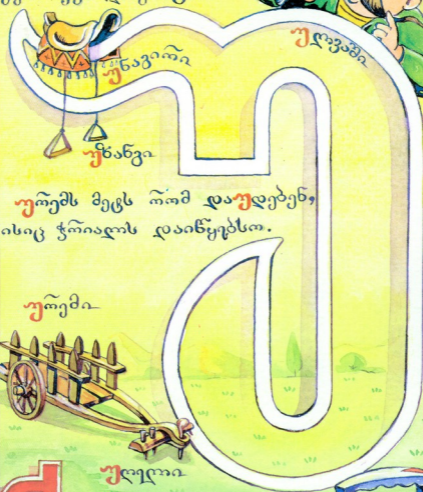 უნაგირი
ულვაში
უზანგი
ურემს მეტს რომ დაუდებენ,
ისიც ჭრიალს დაიწყებსო.
ურემი
უღელი